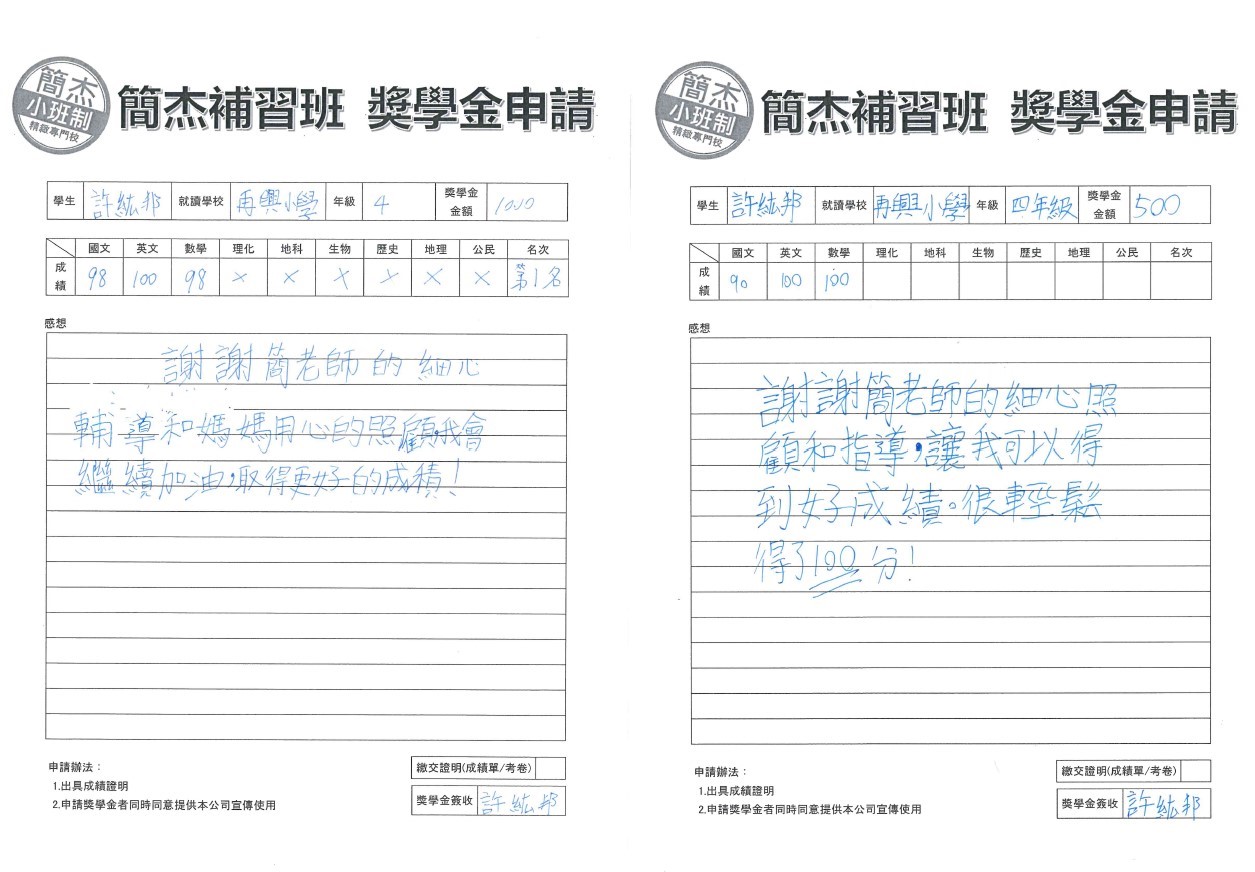 簡杰
小班制
精緻專門校
簡杰補習班 獎學金申請
學生 許紘邦 就讀學校 再興小學 年級 4 獎學金金額 1000
國文 英文 數學 理化 地科 生物 歷史 地理 公民 名次
成績 98 100 98 × × × × × × 第1名
感想
謝謝簡老師的細心
輔導和媽媽用心的照顧,我會
繼續加油,取得更好的成積!
申請辦法:
1.出具成績證明
2.申請獎學金者同時同意提供本公司宣傳使用
繳交證明(成績單/考卷)
獎學金簽收 許紘邦
簡杰
小班制
精緻專門校
簡杰補習班 獎學金申請
學生 許紘邦 就讀學校 再興小學 年級 四年級 獎學金金額 500
國文 英文 數學 理化 地科 生物 歷史 地理 公民 名次
成績 90 100 100
感想
謝謝簡老師的細心照
顧和指導,讓我可以得
到好成績。很輕鬆
得了100分!
申請辦法:
1.出具成績證明
2.申請獎學金者同時同意提供本公司宣傳使用
繳交證明(成績單/考卷)
獎學金簽收 許紘邦